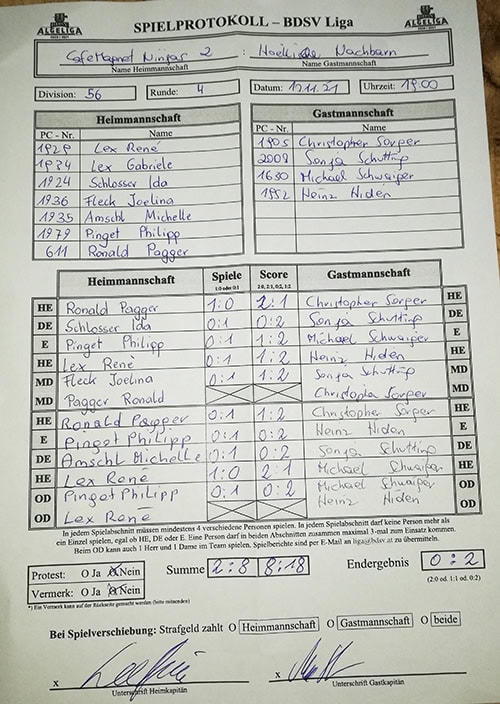 ALGELIGA SPIELPROTOKOLL – BDSV Liga ALGELIGA
CafeMagnet Ninjas 2 : Nachbarn
Name Heimmannschaft Name Gastmannschaft
Division: 56 Runde: 4 Datum: 12.11.21 Uhrzeit: 19:00
Heimmannschaft Gastmannschaft
PC - Nr. Name PC - Nr. Name
1929 Lex René 1905 Christopher Sorper
1934 Lex Gabriele 2009 Sonja Schutting
1924 Schlosser Ida 1630 Michael Schwaiger
1936 Fleck Joelina 1952 Heinz Hiden
1935 Amschl Michelle
1979 Pinget Philipp
611 Ronald Pagger
Heimmannschaft Spiele Score Gastmannschaft
1:0 oder 0:1 2:0, 2:1, 0:2, 1:2
HE Ronald Pagger 1:0 2:1 Christopher Sorper HE
DE Schlosser Ida 0:1 0:2 Sonja Schutting DE
E Pinget Philipp 0:1 1:2 Michael Schwaiger E
HE Lex René 0:1 1:2 Heinz Hiden HE
MD Fleck Joelina 0:1 1:2 Sonja Schutting MD
MD Pagger Ronald Christopher Sorper MD
HE Ronald Pagger 0:1 1:2 Christopher Sorper HE
E Pinget Philipp 0:1 0:2 Heinz Hiden E
DE Amschl Michelle 0:1 0:2 Sonja Schutting DE
HE Lex René 1:0 2:1 Michael Schwaiger HE
OD Pinget Philipp 0:1 0:2 Michael Schwaiger OD
OD Lex René Heinz Hiden OD
In jedem Spielabschnitt müssen mindestens 4 verschiedene Personen spielen. In jedem Spielabschnitt darf keine Person mehr als
ein Einzel spielen, egal ob HE, DE oder E. Eine Person darf in beiden Abschnitten zusammen maximal 3-mal zum Einsatz kommen.
Beim OD kann auch 1 Herr und 1 Dame im Team spielen. Spielberichte sind per E-Mail an liga@bdsv.at zu übermitteln.
Protest: O Ja O Nein Summe 2:8 8:18 Endergebnis 0:2
Vermerk: O Ja O Nein (2:0 od. 1:1 od. 0:2)
*) Ein Vermerk kann auf der Rückseite gemacht werden (bitte mitsenden)
Bei Spielverschiebung: Strafgeld zahlt O Heimmannschaft O Gastmannschaft O beide
x x
Unterschrift Heimkapitän Unterschrift Gastkapitän